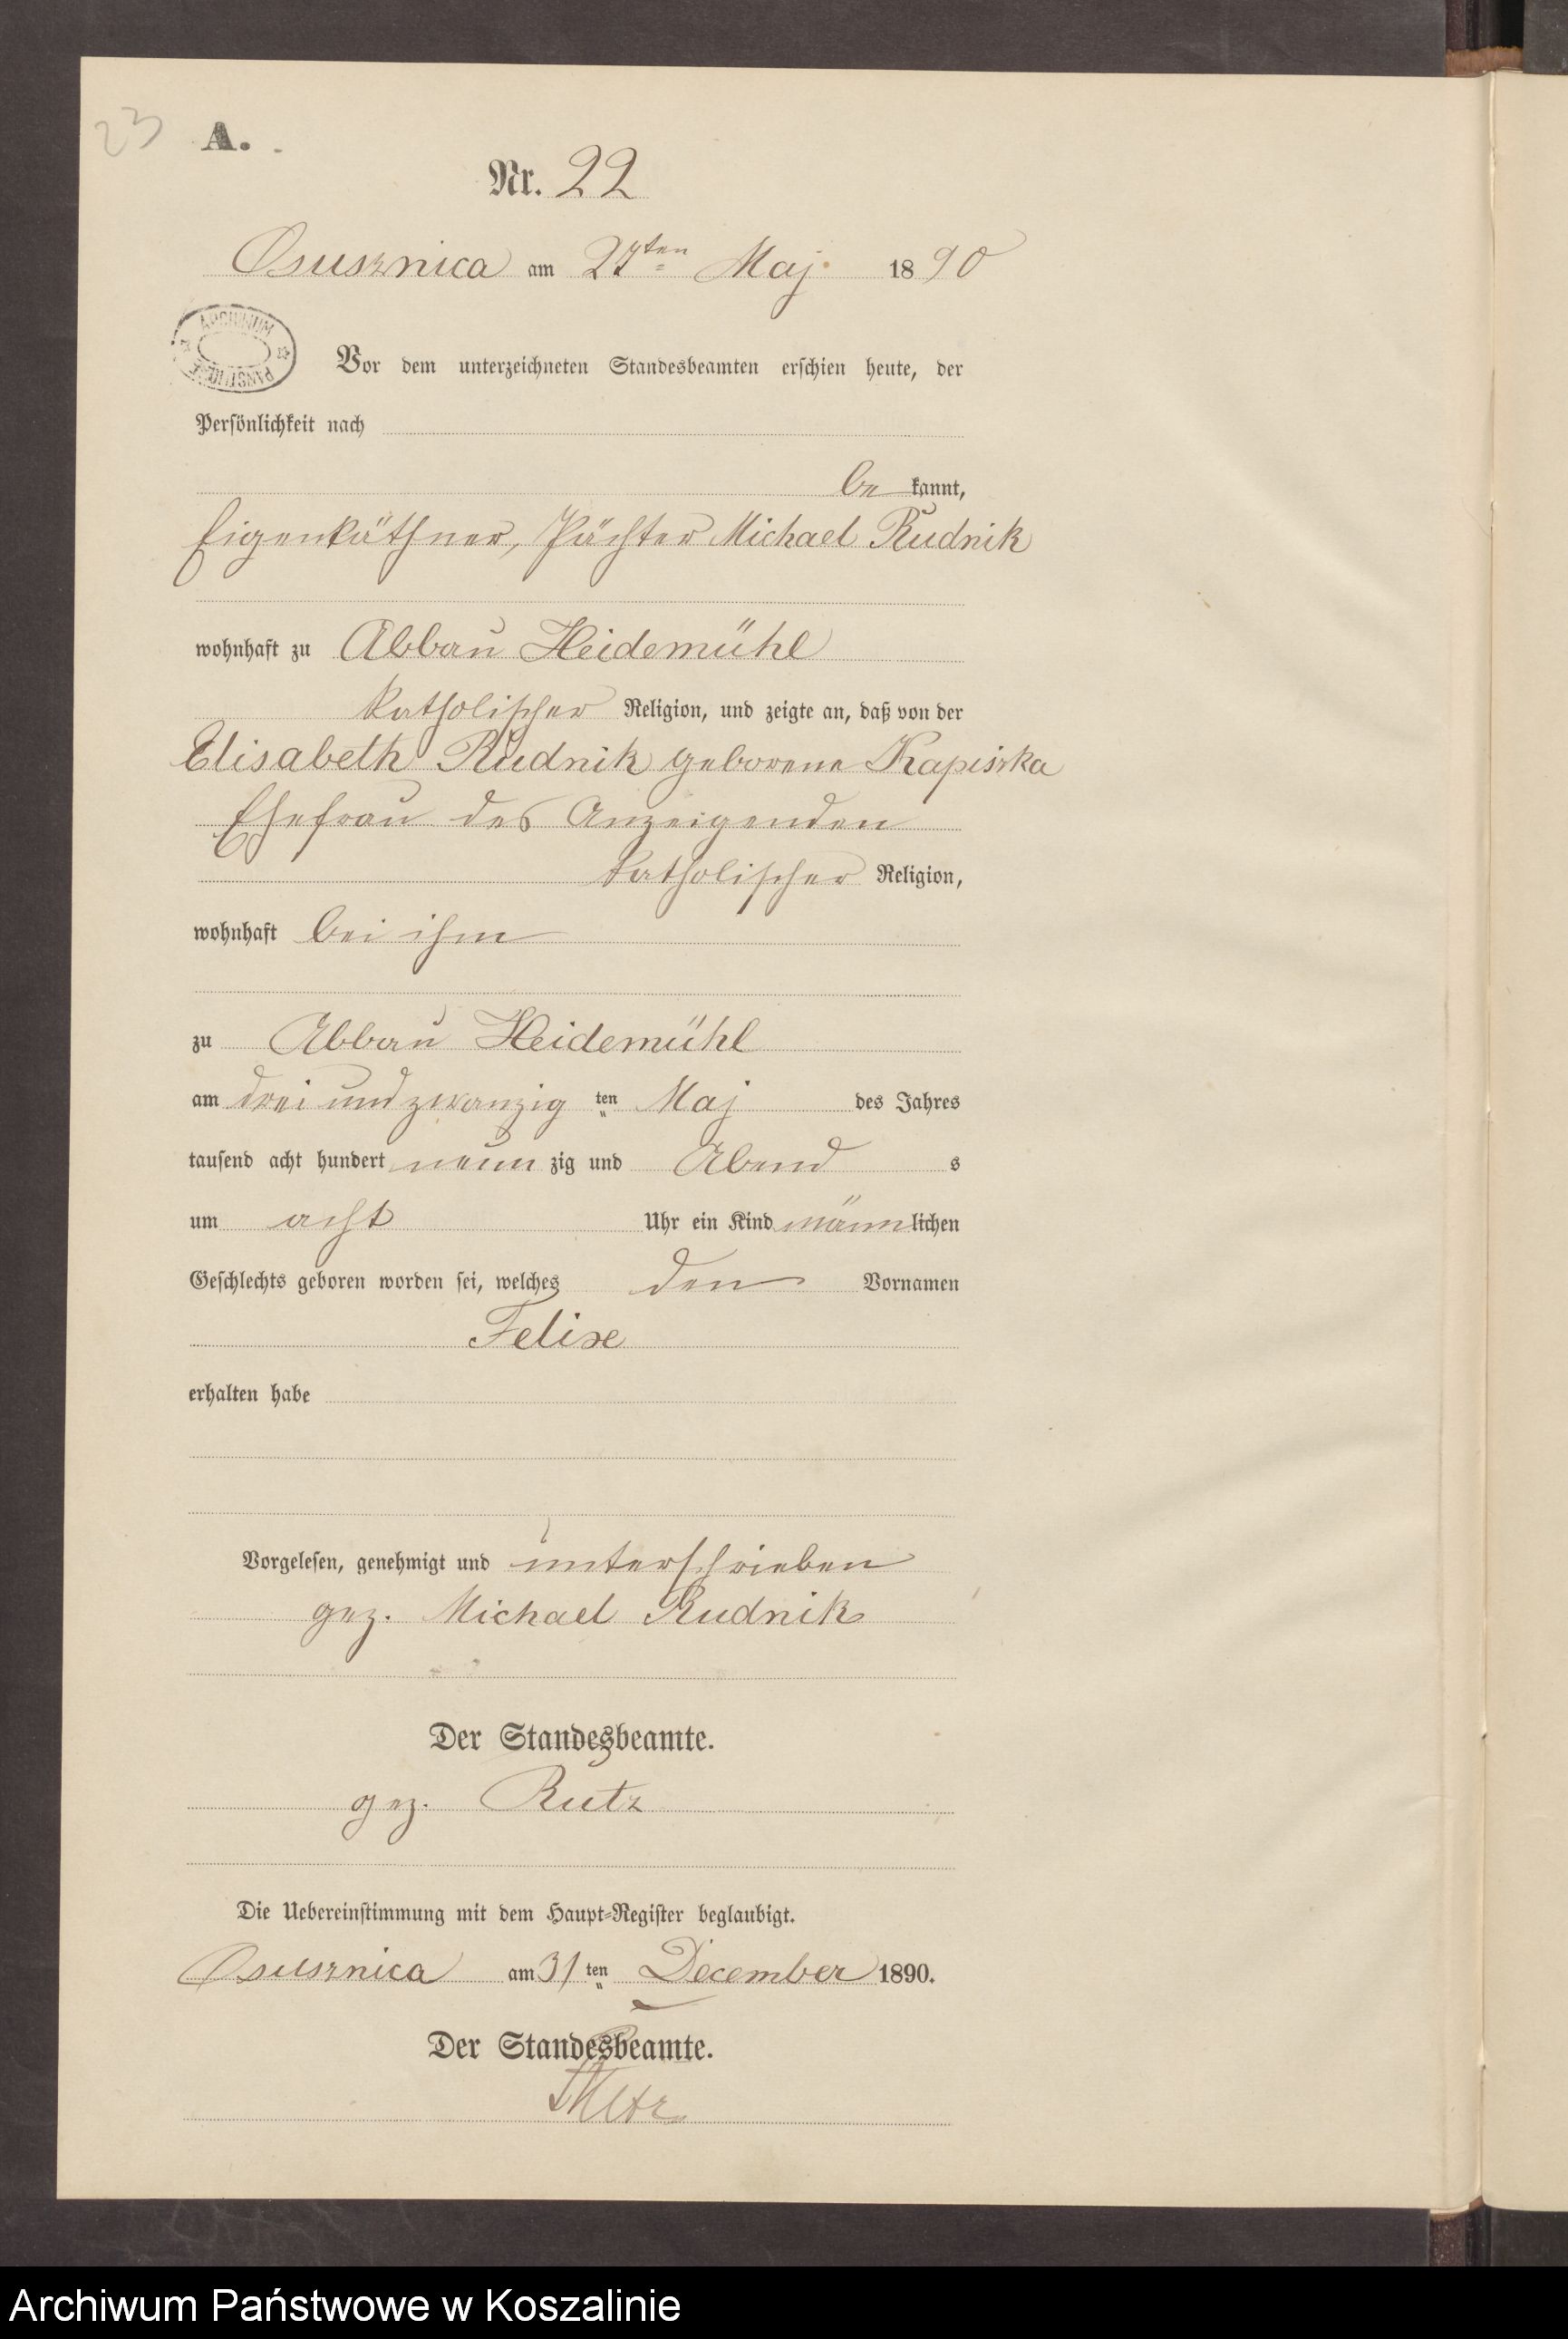 23
A.
Nr. 22
Osusznica am 27ten Maj 1890
ARCHIWUM
Vor dem unterzeichneten Standesbeamten erschien heute, der
Persönlichkeit nach
be kannt,
Eigenkäthner, Pächter Michael Rudnik
wohnhaft zu Abbau Heidemühl
katholischer Religion, und zeigte an, daß von der
Elisabeth Rudnik geborene Kapiszka
Ehefrau des Anzeigenden
katholischer Religion,
wohnhaft bei ihm
zu Abbau Heidemühl
am drei und zwanzig ten Maj des Jahres
tausend acht hundert neun zig und Abend s
um acht Uhr ein Kind männlichen
Geschlechts geboren worden sei, welches den Vornamen
Felix
erhalten habe
Vorgelesen, genehmigt und unterschrieben
gez. Michael Rudnik
Der Standesbeamte.
gez. Rutz
Die Uebereinstimmung mit dem Haupt-Register beglaubigt.
Osusznica am 31 ten December 1890.
Der Standesbeamte.
Archiwum Państwowe w Koszalinie